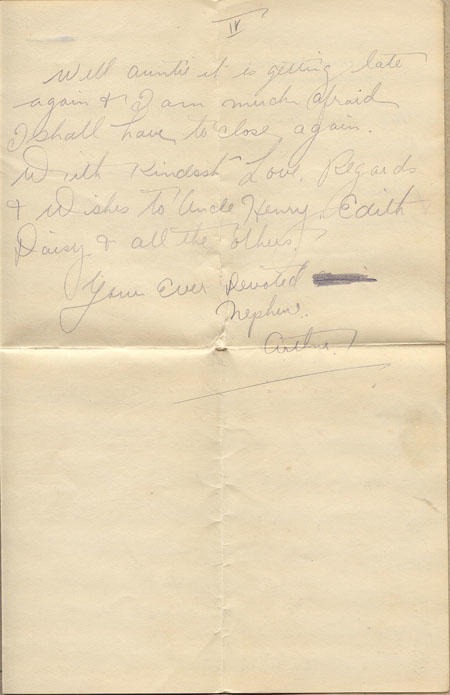 IV
Well auntie it is getting late
again & I am much afraid
I shall have to close again.
With Kindest Love, Regards
& Wishes to Uncle Henry, Edith
Daisy & all the others.
Your Ever Devoted
Nephew.
Arthur.